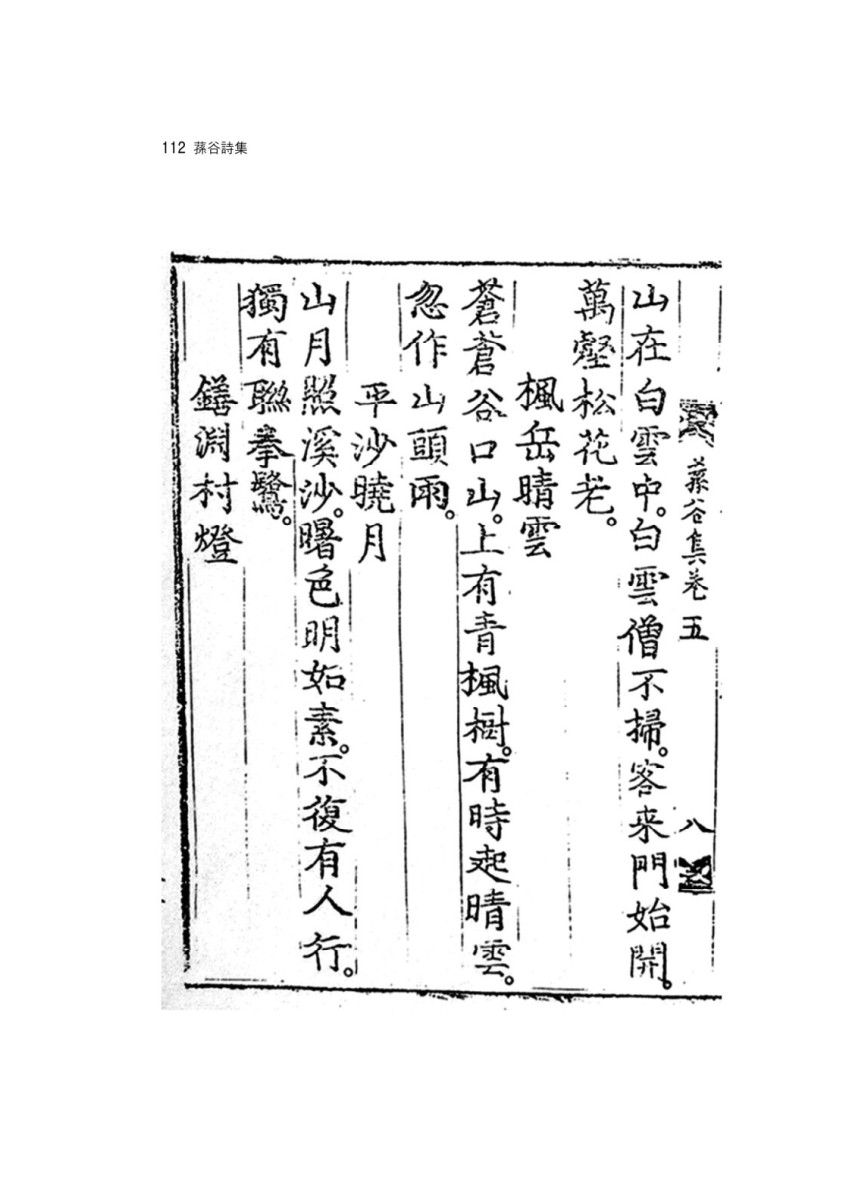 112 蓀谷詩集
蓀谷集卷五
八
山在白雲中。白雲僧不掃。客来門始開。
萬壑松花老。
楓岳晴雲
蒼蒼谷口山。上有青楓樹。有時起晴雲。
忽作山頭雨。
平沙曉月
山月照溪沙。曙色明如素。不復有人行。
獨有聯拳鷺。
鐥淵村燈